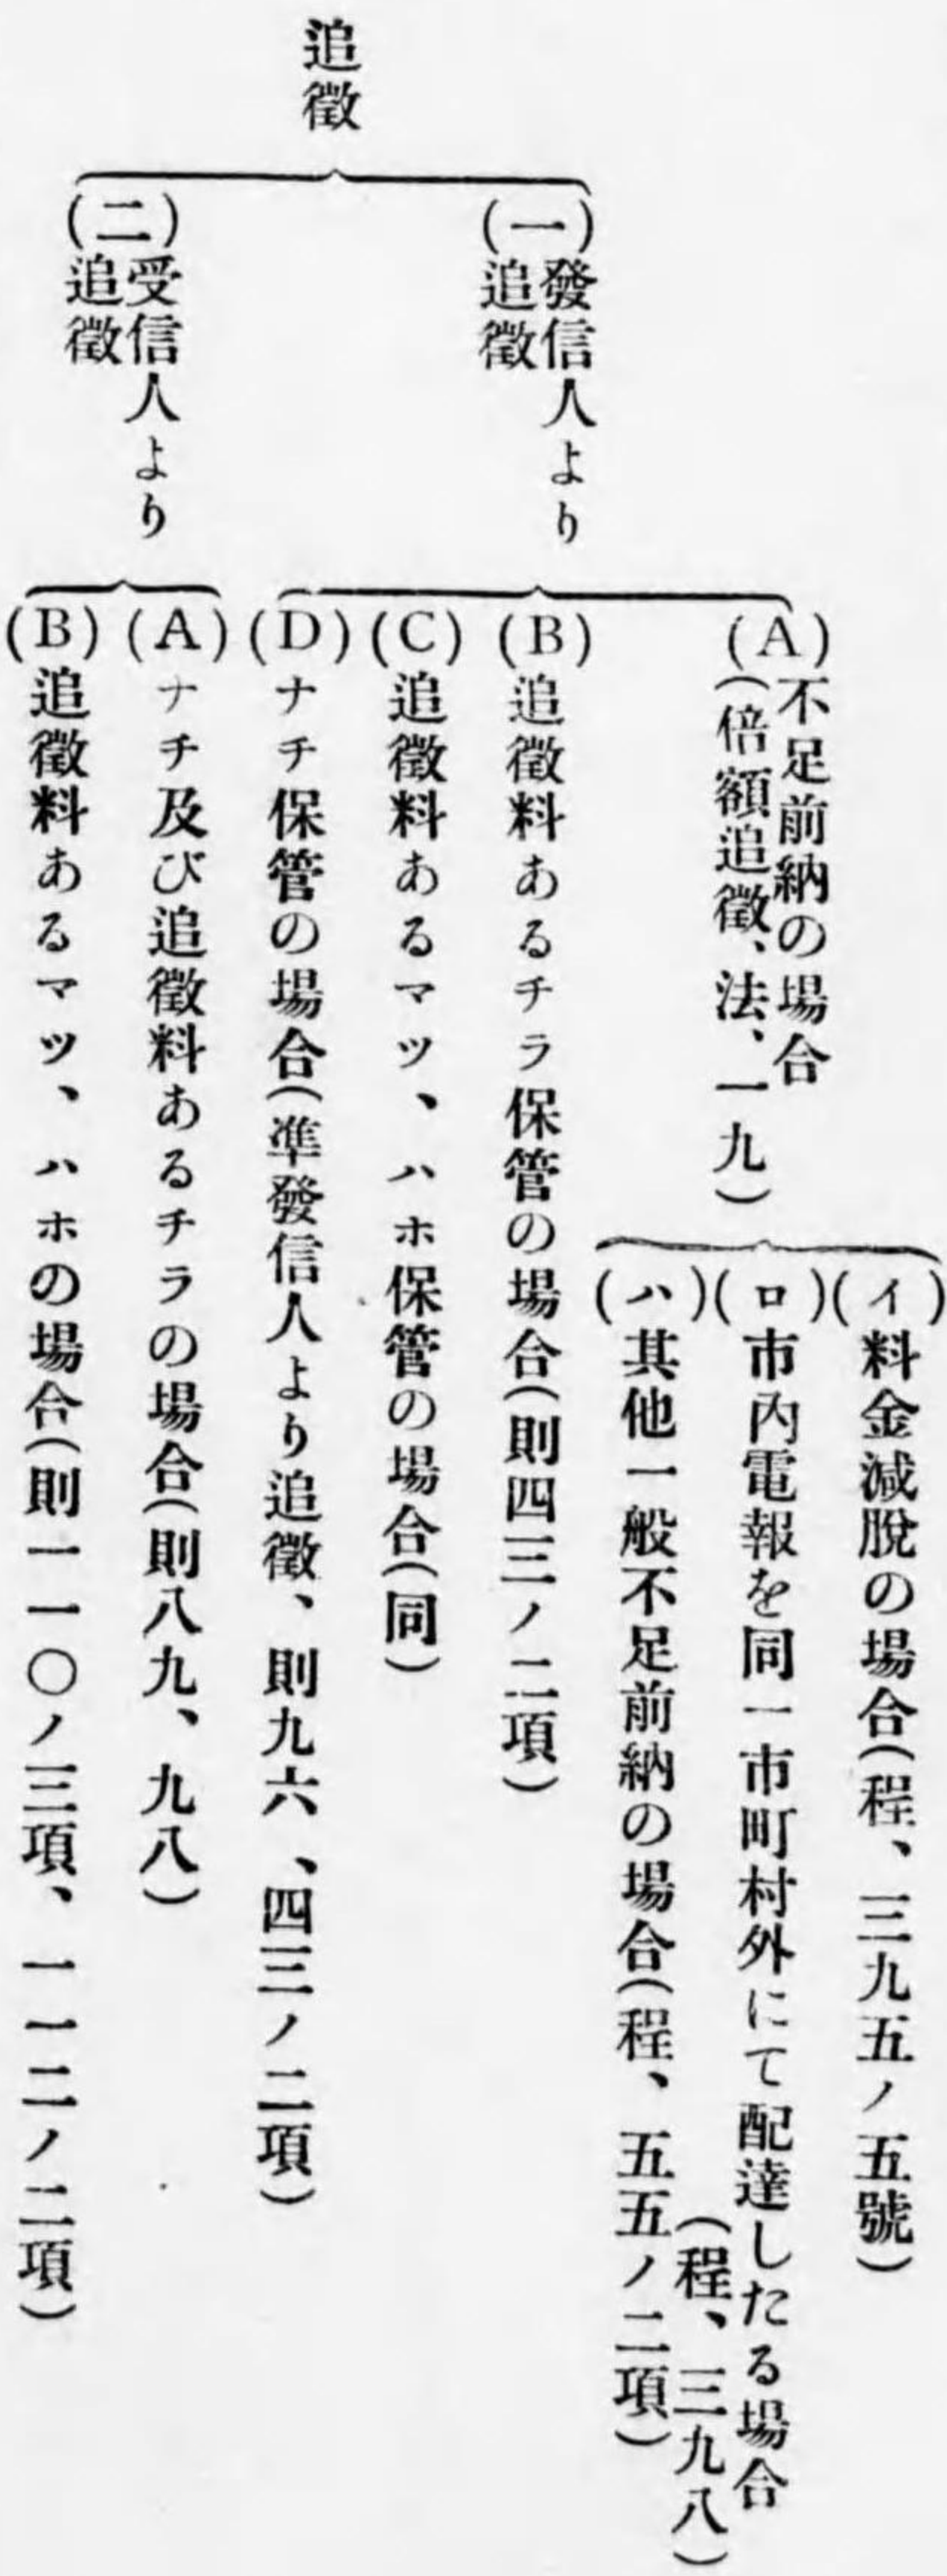 追徵
(一)發信人より
追徵
(A)不足前納の場合
(倍額追徵、法、一九)
(イ)料金減脫の場合(程、三九五ノ五號)
(ロ)市內電報を同一市町村外にて配達したる場合
(程、三九八)
(ハ)其他一般不足前納の場合(程、五五ノ二項)
(B)追徵料あるチラ保管の場合(則四三ノ二項)
(C)追徵料あるマツ、ハホ保管の場合(同)
(D)ナチ保管の場合(準發信人より追徵、則九六、四三ノ二項)
(二)受信人より
追徵
(A)ナチ及び追徵料あるチラの場合(則八九、九八)
(B)追徵料あるマツ、ハホの場合(則一一〇ノ三項、一一二ノ二項)